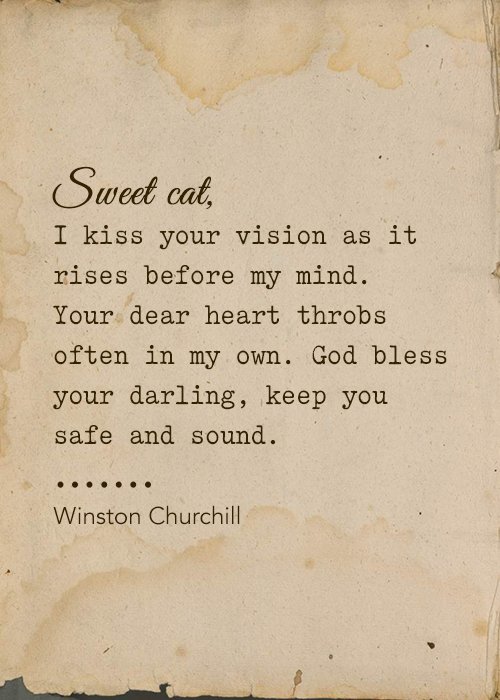 Sweet cat,
I kiss your vision as it
rises before my mind.
Your dear heart throbs
often in my own. God bless
your darling, keep you
safe and sound.
.......
Winston Churchill